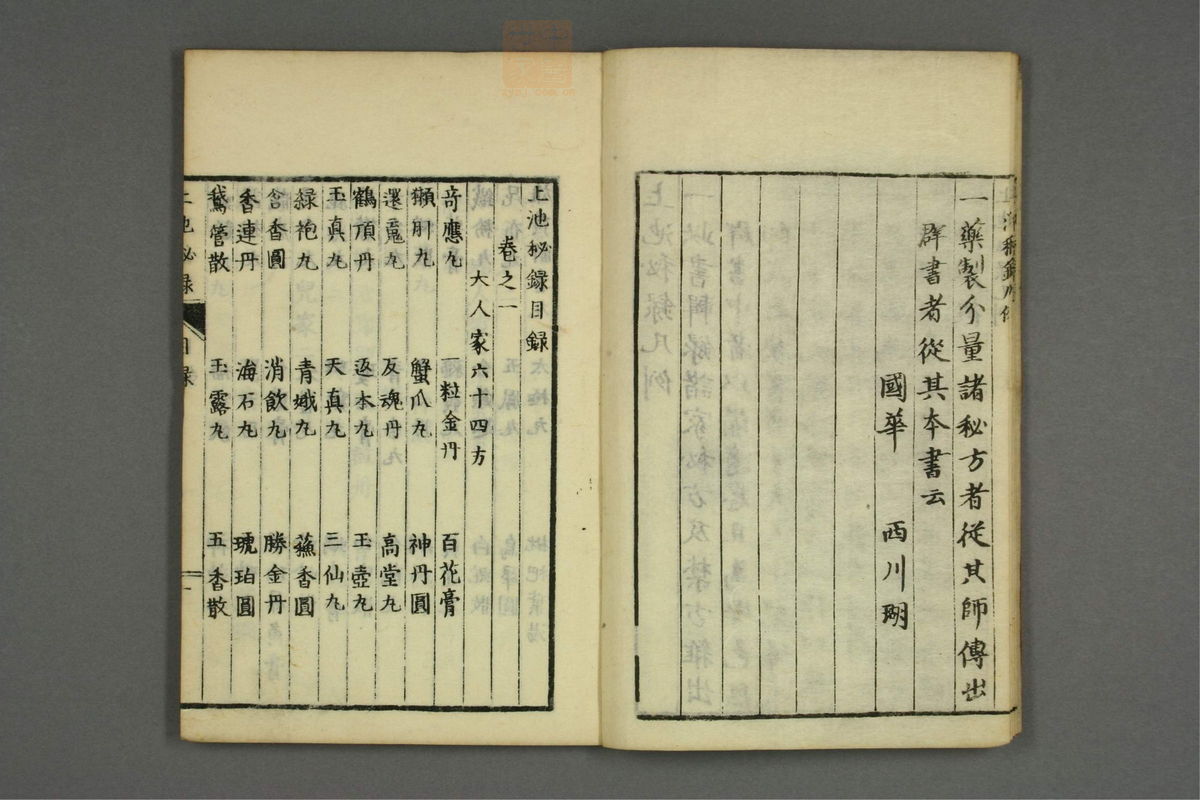 一藥製分量諸秘方者從其師傳出
群書者從其本書云
國華　西川瑚
上池秘録目録
卷之一
大人家六十四方
奇應丸　一粒金丹　百花膏
獺肝丸　蟹爪丸　神丹圓
還魂丸　反魂丹　高堂丸
鶴頂丹　返本丸　玉壺丸
玉真丸　天真丸　三仙丸
緑袍丸　青娥丸　蘓香圓
含香圓　消飲丸　勝金丹
香連丹　海石丸　琥珀圓
鵞管散　玉露丸　五香散
上池秘录　目录